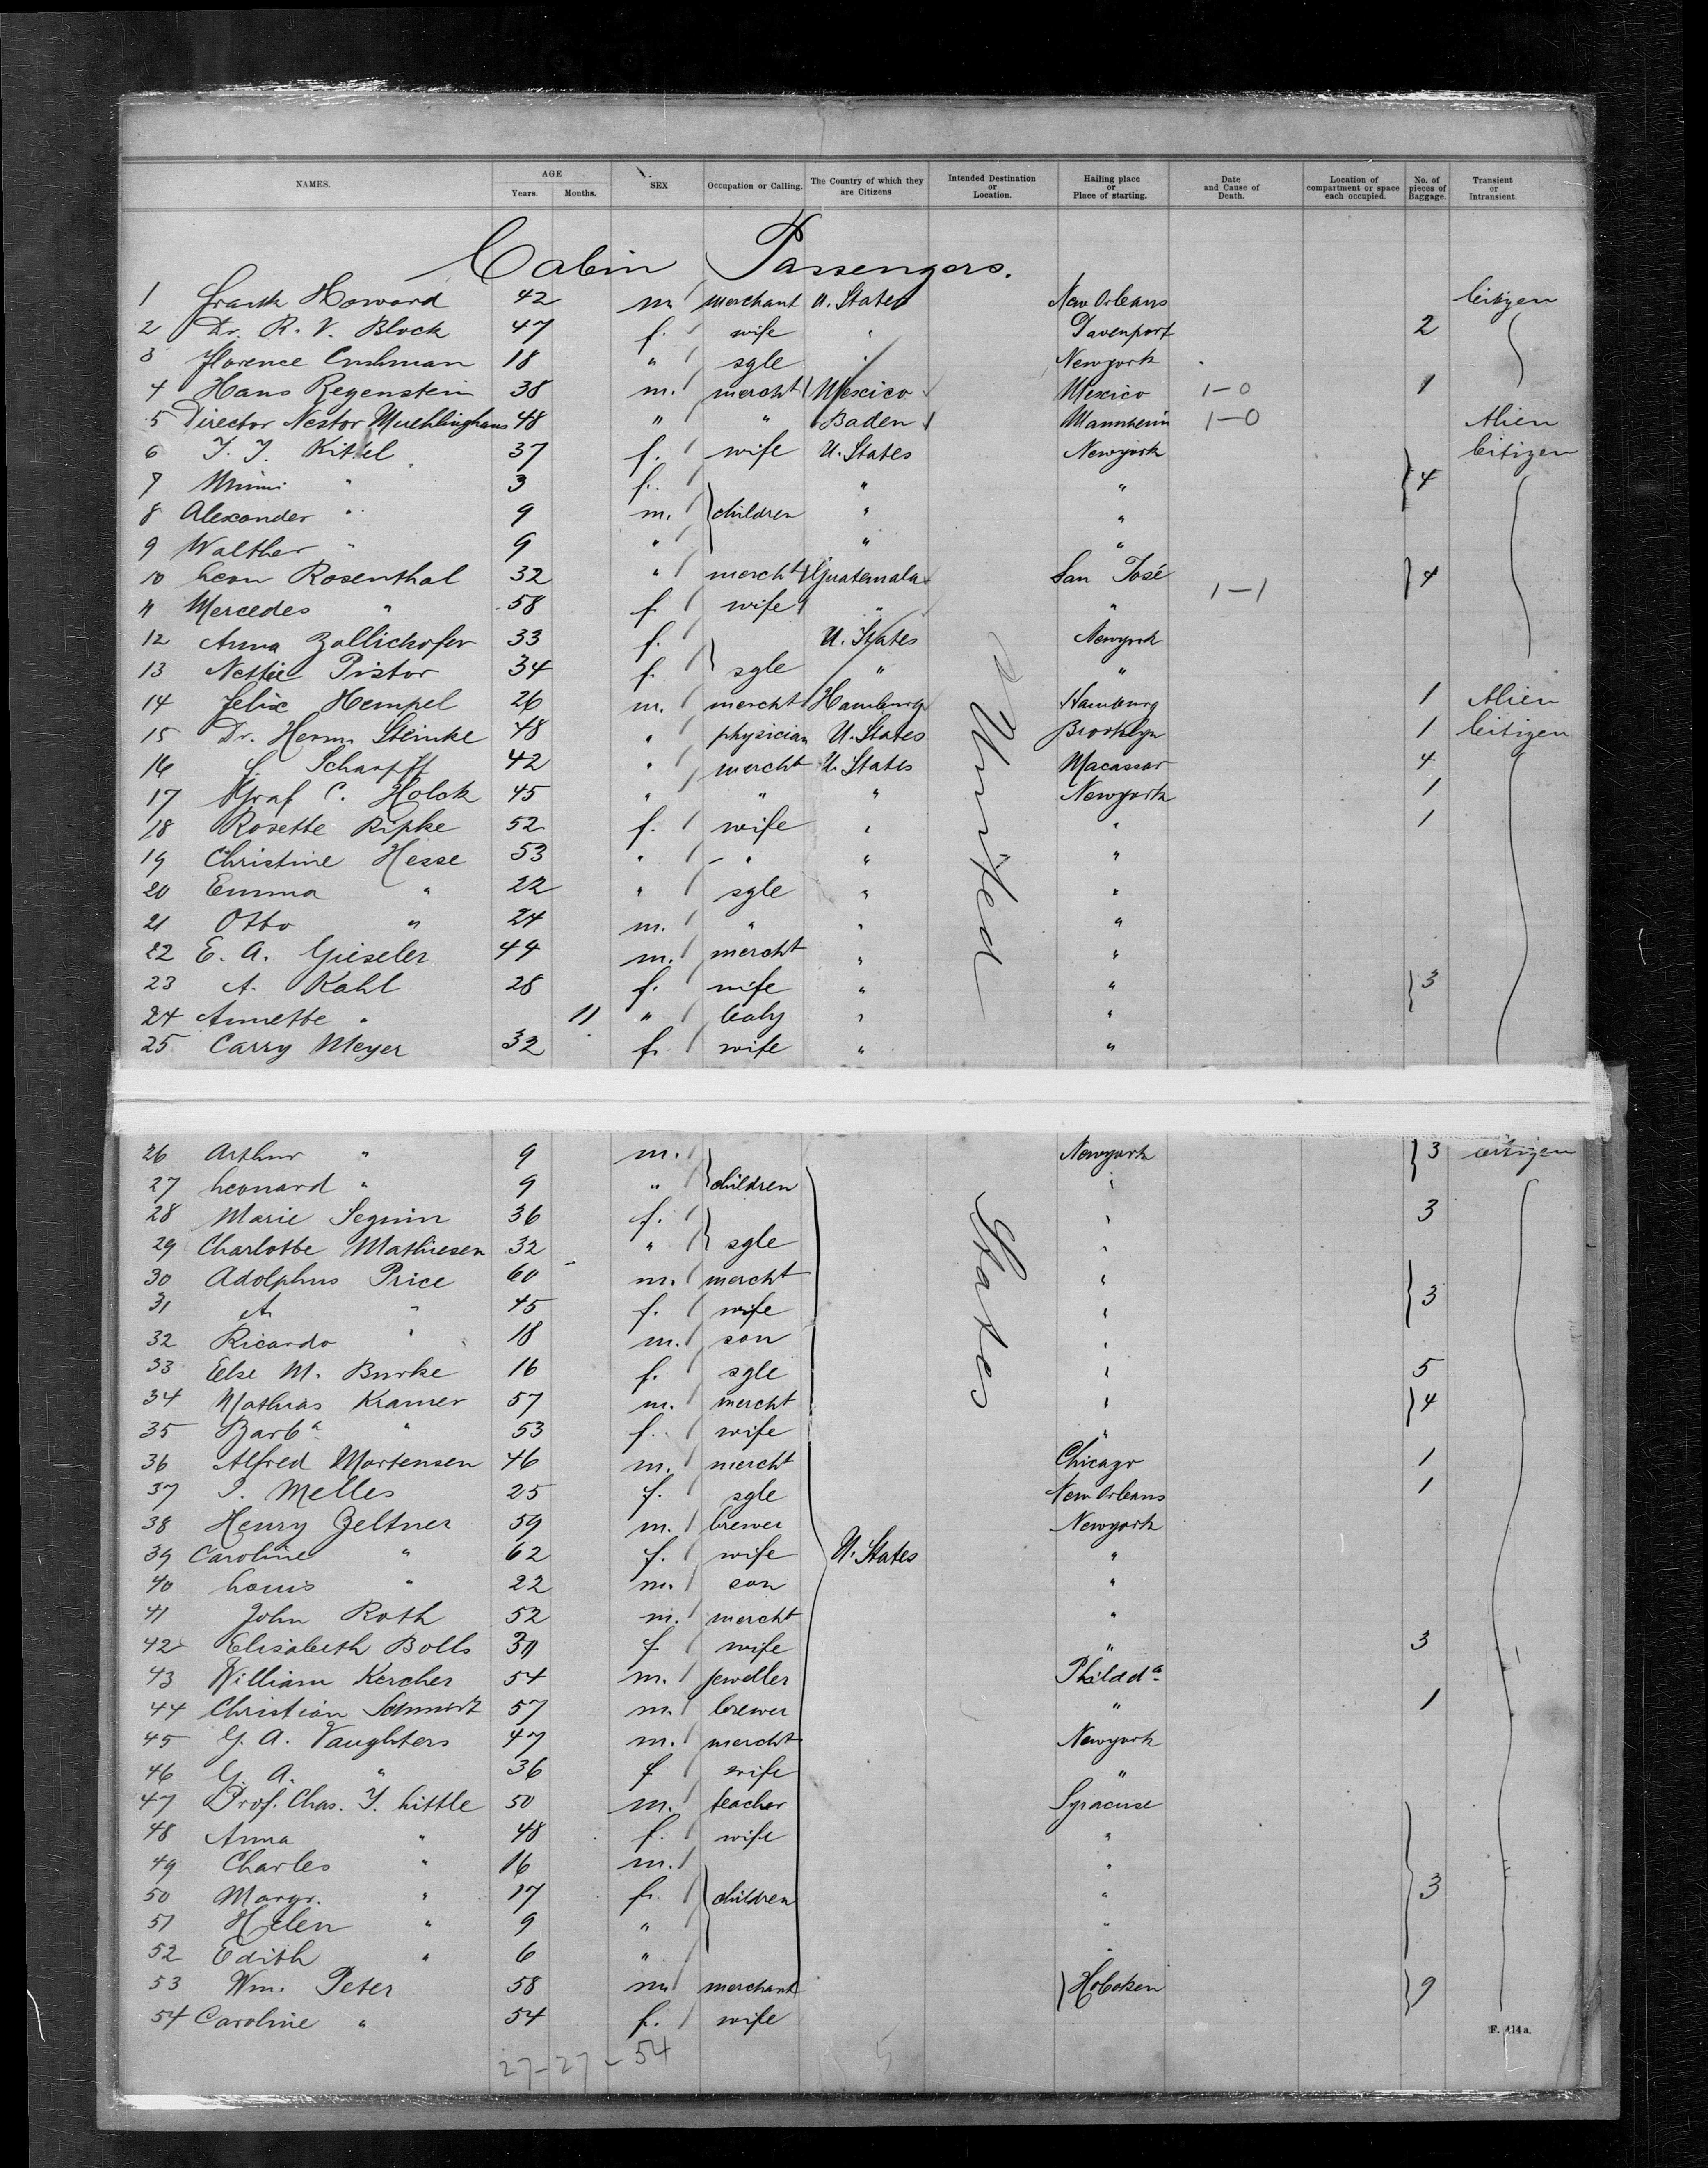 NAMES. AGE Years. Months. SEX Occupation or Calling. The Country of which they are Citizens Intended Destination or Location. Hailing place or Place of starting. Date and Cause of Death. Location of compartment or space each occupied. No. of pieces of Baggage. Transient or Intransient.
Cabin Passengers.
1 Frank Howard 42 m merchant U. States New Orleans Citizen
2 Dr. R. V. Block 47 f. wife " Davenport 2
3 Florence Cushman 18 " sgle " Newyork
4 Hans Regenstein 38 m. mercht Mexico Mexico 1-0 1
5 Director Nestor Muehlinghaus 48 " " Baden Mannheim 1-0 Alien
6 T. T. Kittel 37 f. wife U. States Newyork Citizen
7 Minni " 3 f. " " 4
8 Alexander " 9 m. children " "
9 Walther " 9 " " "
10 Leon Rosenthal 32 " mercht Guatemala San José 4
11 Mercedes " 58 f. wife " " 1-1
12 Anna Zollichofer 33 f. U. States Newyork
13 Nettie Pistor 34 f. sgle " "
14 Felix Hempel 26 m. mercht Hamburg Hamburg 1 Alien
15 Dr. Herm. Steinke 48 " physician U. States Brooklyn 1 Citizen
16 Scharpff 42 " mercht U. States Macassar 4
17 Graf C. Holck 45 " " " Newyork 1
18 Rosette Ripke 52 f. wife " " 1
19 Christine Hesse 53 " " " "
20 Emma " 22 " sgle " "
21 Otto " 24 m. " " "
22 E. A. Gieseler 44 m. mercht " "
23 A. Kahl 28 f. wife " " 3
24 Annette " 11 " baby " "
25 Carry Meyer 32 f. wife " "
United
26 Arthur " 9 m. Newyork 3 citizen
27 Leonard " 9 " children "
28 Marie Seguin 36 f. " 3
29 Charlotte Mathiesen 32 " sgle "
30 Adolphus Price 60 m. mercht "
31 A. " 45 f. wife " 3
32 Ricardo " 18 m. son "
33 Else M. Burke 16 f. sgle " 5
34 Mathias Kramer 57 m. mercht " 4
35 Barba " 53 f. wife "
36 Alfred Mortensen 46 m. mercht Chicago 1
37 Melles 25 f. sgle New Orleans 1
38 Henry Zeltner 59 m. brewer Newyork
39 Caroline " 62 f. wife U. States "
40 Louis " 22 m. son "
41 John Roth 52 m. mercht "
42 Elisabeth Bolls f wife " 3
43 William Kercher 54 m. jeweller Philada
44 Christian Schmidt 57 m. brewer " 1
45 G. A. Vaughters 47 m. mercht Newyork
46 G. A. " 36 f wife "
47 Prof. Chas. T. Little 50 m. teacher Syracuse
48 Anna " 48 f. wife "
49 Charles " 16 m. "
50 Margr. " 17 f. children " 3
51 Helen " 9 " "
52 Edith " 6 " "
53 Wm. Peter 58 m merchant Hoboken 9
54 Caroline " 54 f. wife
States
F. 414a.
27-27-54